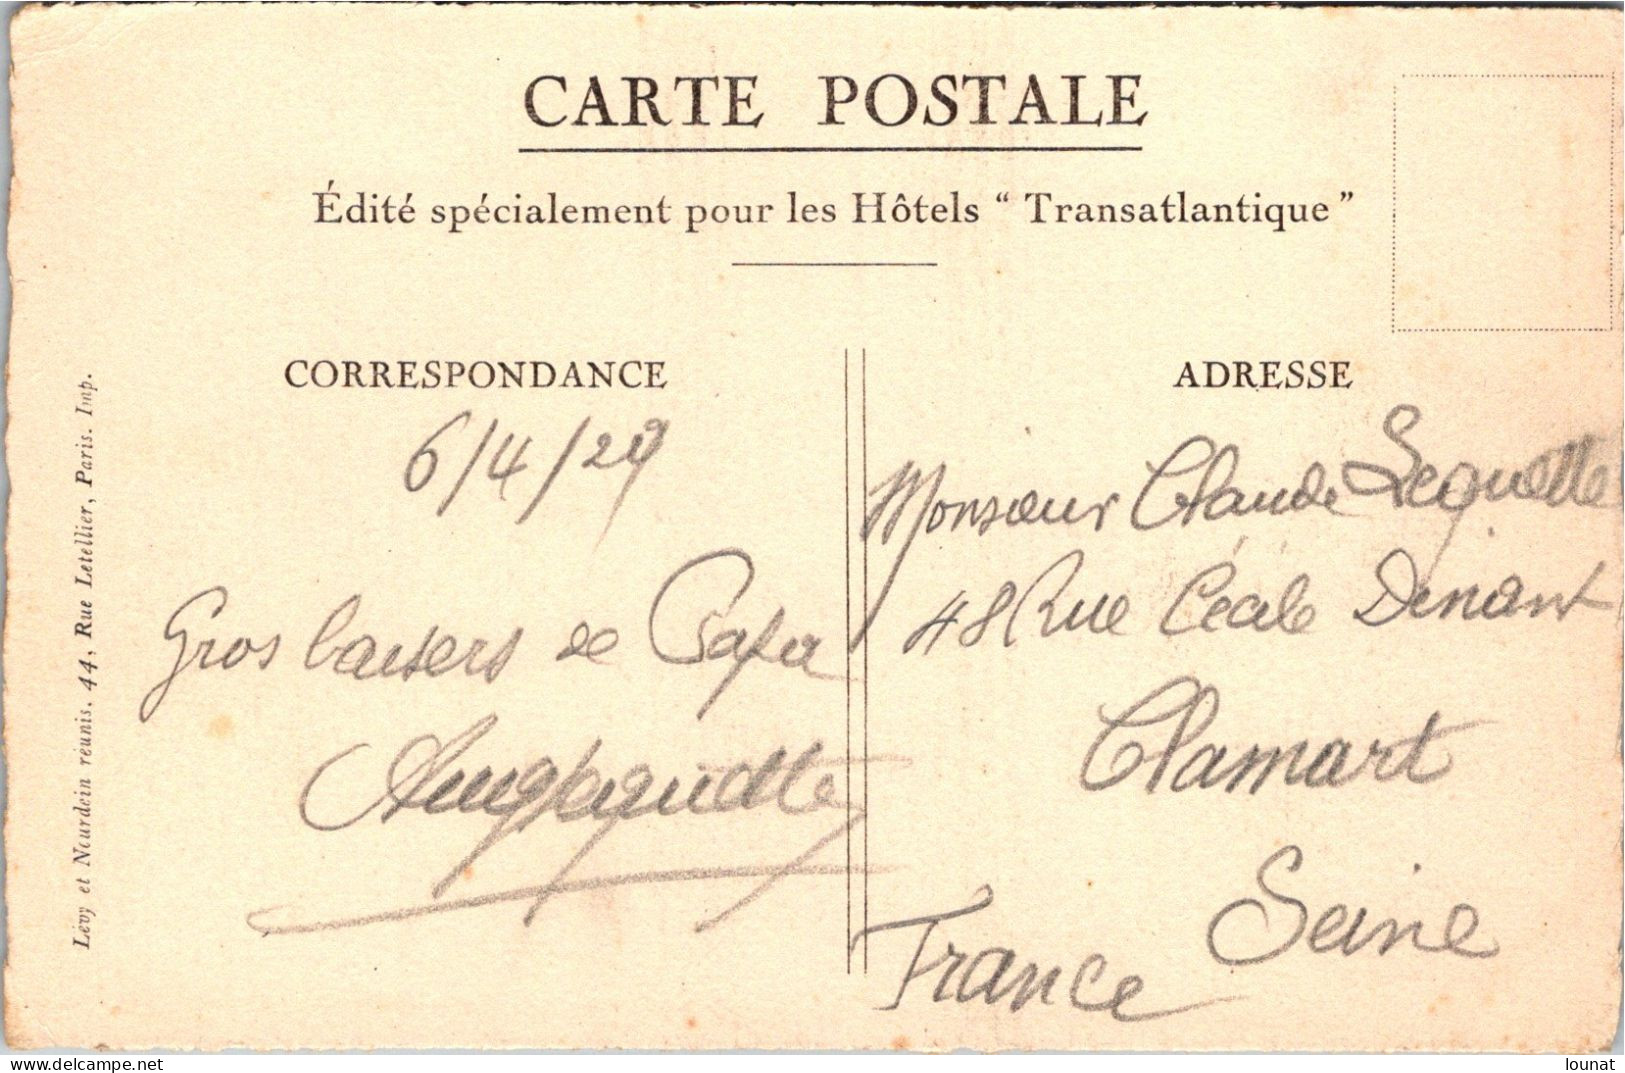 CARTE POSTALE
Édité spécialement pour les Hôtels “ Transatlantique ”
CORRESPONDANCE
6/4/29
Gros baisers de Papa
ADRESSE
Monsieur Claude Lequette
48 Rue Cécile Dinant
Clamart
Seine
France
Lévy et Neurdein réunis, 44, Rue Letellier, Paris. Imp.
delcampe.net
lounat